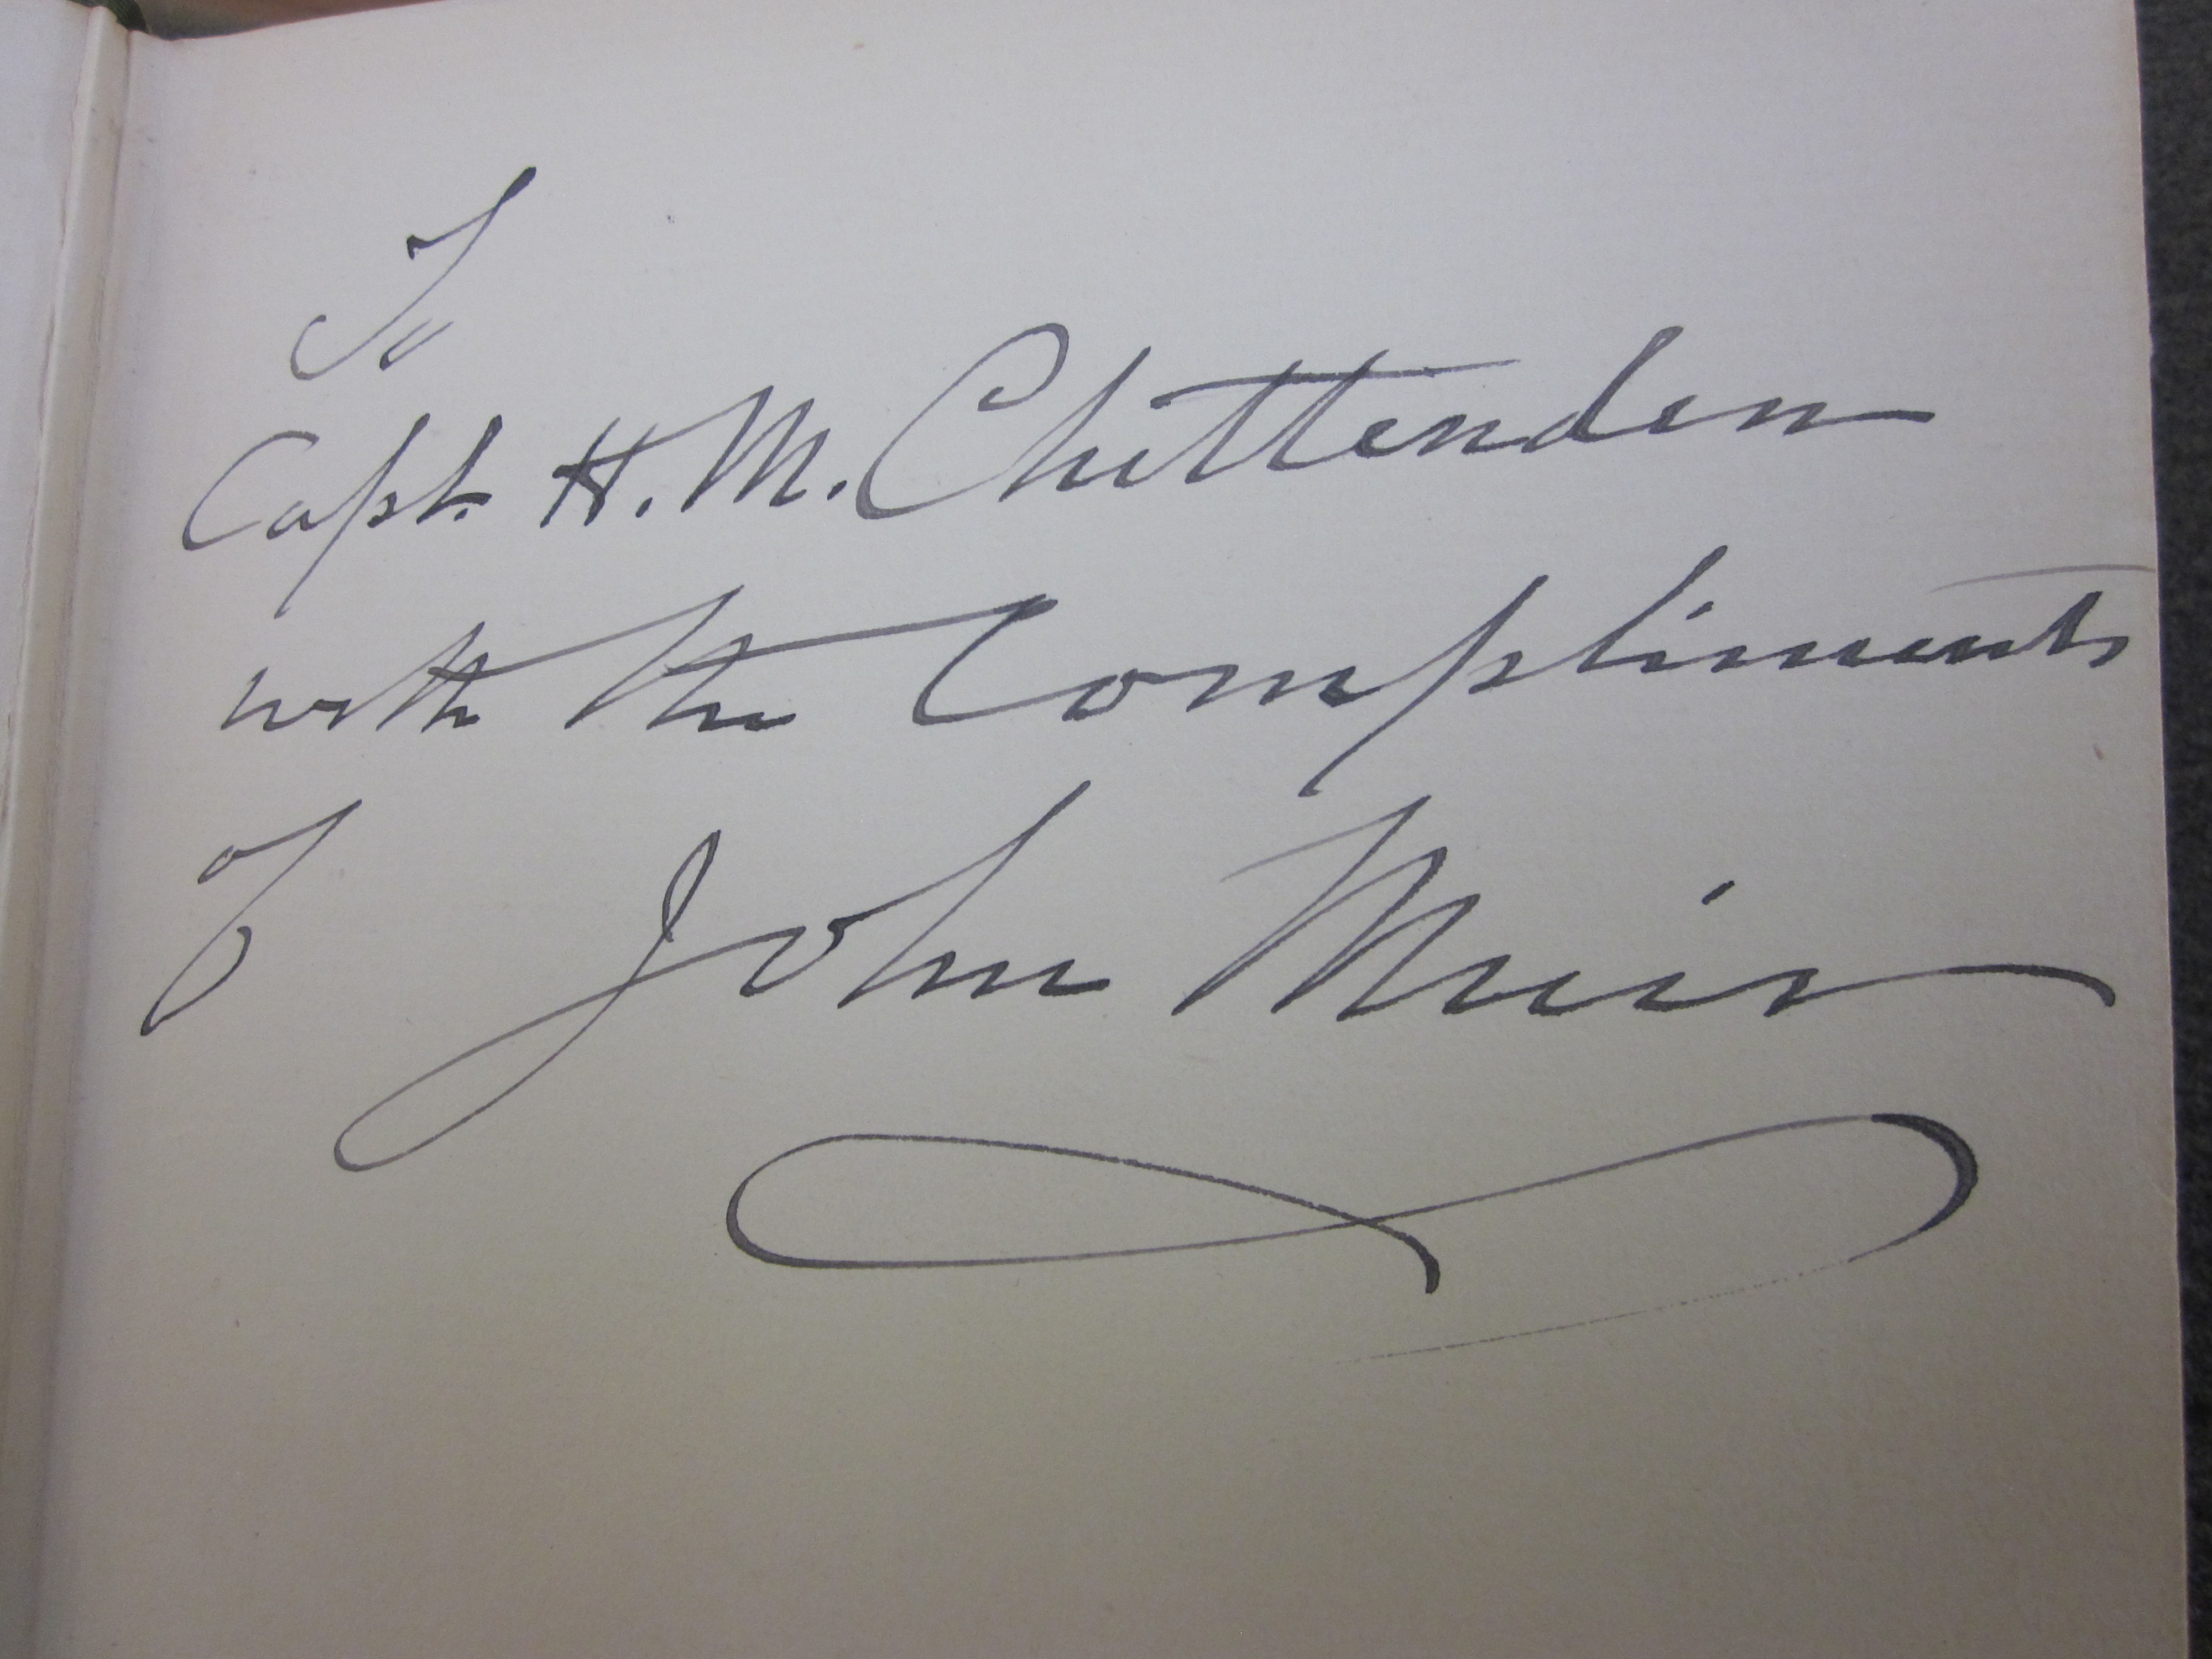 To
Capt. H. M. Chittenden
with the Compliments
of John Muir